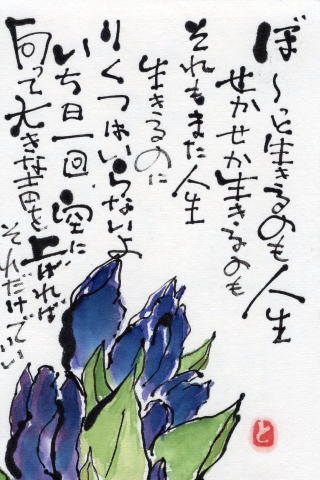 ぼ〜っと生きるのも人生
せかせか生きるのも
それもまた人生
生きるのに
りくつはいらないよ
いち日一回、空に
向って大きな声を
上げれば
それだけでいい
と